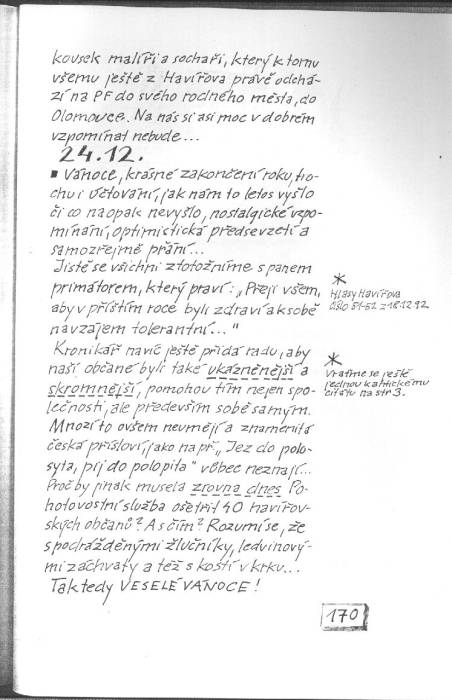 kousek malíři a sochaři, který k tomu
všemu ještě z Havířova právě odchá-
zí na PF do svého rodného města, do
Olomouce. Na nás si asi moc v dobrém
vzpomínat nebude...
24.12.
▪ Vánoce, krásné zakončení roku, tro-
chu i účtování, jak nám to letos vyšlo
či co naopak nevyšlo, nostalgické vzpo-
mínání, optimistická předsevzetí a
samozřejmě přání...
Jistě se všichni ztotožníme s panem
primátorem, který praví: „Přeji všem,
aby v příštím roce byli zdraví a k sobě
navzájem tolerantní..."
Kronikář navíc ještě přidá radu, aby
naši občané byli také ukázněnější a
skromnější, pomohou tím nejen spo-
lečnosti, ale především sobě samým.
Mnozí to ovšem neumějí a znamenitá
česká přísloví, jako např. „Jez do polo-
syta, pij do polopita" vůbec neznají...
Proč by jinak musela zrovna dnes Po-
hotovostní služba ošetřit 40 havířov-
ských občanů? A s čím? Rozumí se, že
s podrážděnými žlučníky, ledvinový-
mi záchvaty a též s kostí v krku...
Tak tedy VESELÉ VÁNOCE!
*
Hlasy Havířova
číslo 51-52 z 18.12.92
*
Vraťme se ještě
jednou k antickému
citátu na str 3.
170